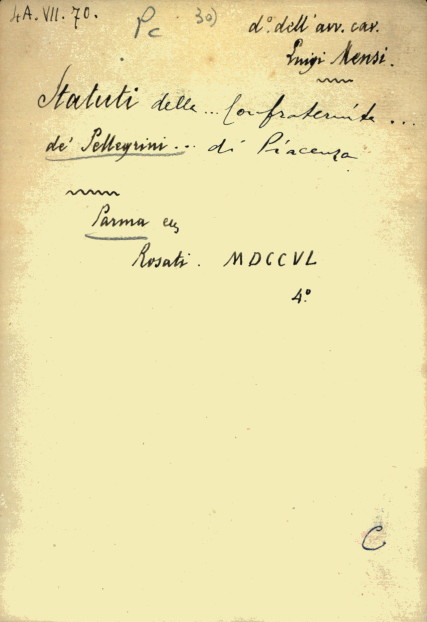 4A. VII. 70.
Pc
30)
d.º dell'avv. cav.
Luigi Mensi.
Statuti della ... Confraternita ...
de' Pellegrini ... di Piacenza
Parma
Rosati. MDCCVL
4.º
C